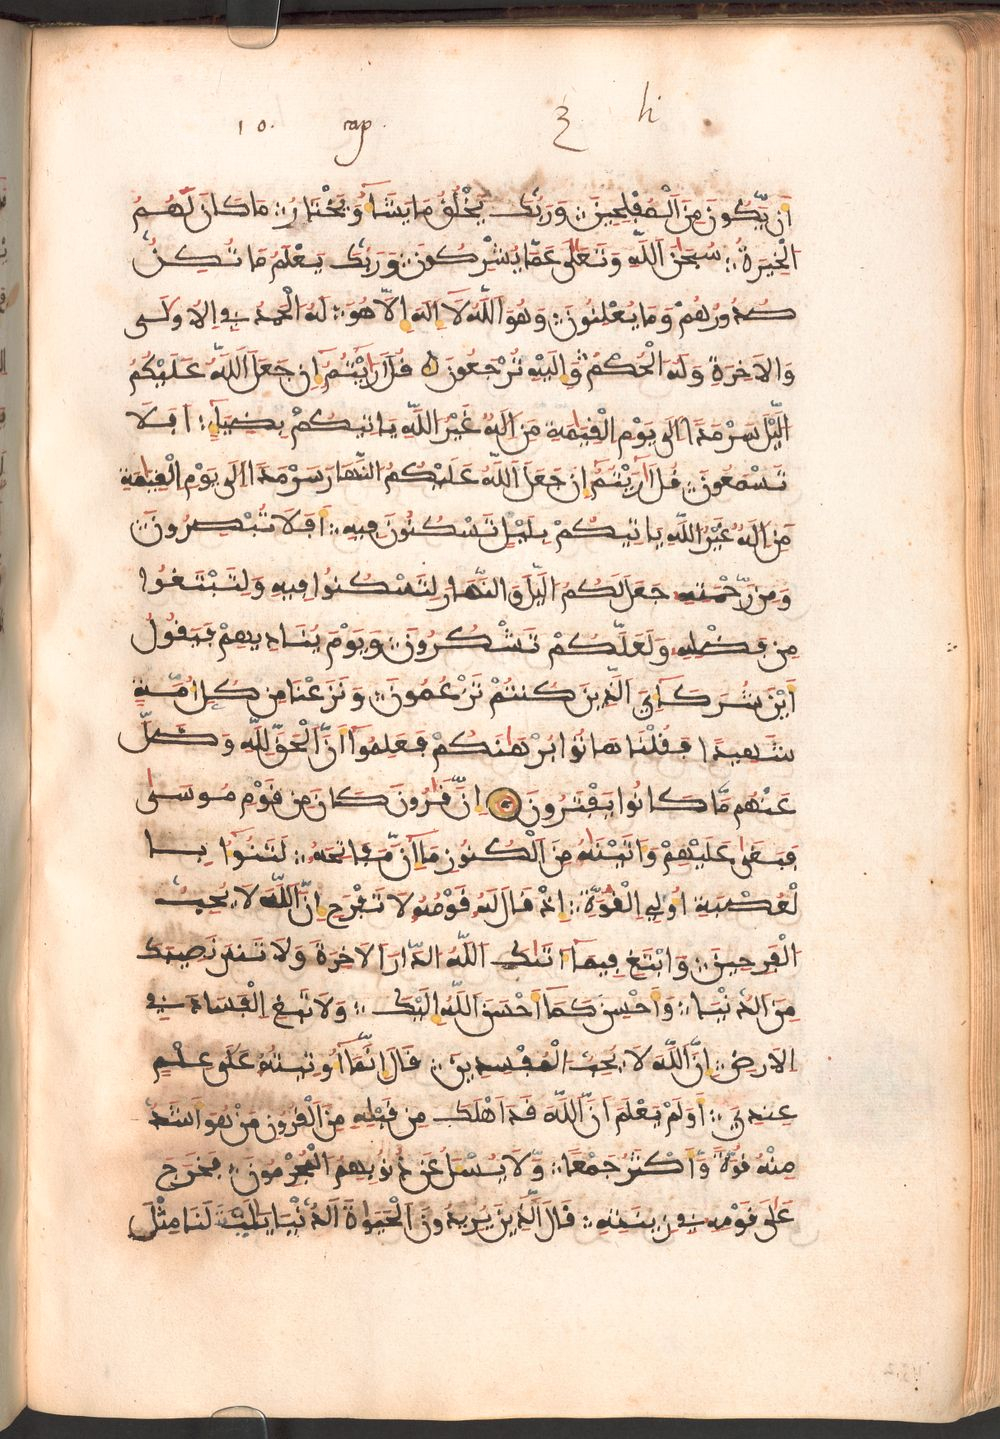 10. cap. 3 li
اَن يَّكُونَ مِنَ اَلْمُفْلِحِينَ وَرَبُّكَ يَخْلُقُ مَا يَشَآءُ وَيَخْتَارُ مَا كَانَ لَهُمُ
اُلْخِيَرَةُ سُبْحَٰنَ اَللَّهِ وَتَعَٰلَىٰ عَمَّا يُشْرِكُونَ وَرَبُّكَ يَعْلَمُ مَا تُكِنُّ
صُدُورُهُمْ وَمَا يُعْلِنُونَ وَهُوَ اَللَّهُ لَآ إِلَٰهَ إِلَّا هُوَ لَهُ اُلْحَمْدُ فِي اِلُاولَىٰ
وَالَاخِرَةِ وَلَهُ اُلْحُكْمُ وَإِلَيْهِ تُرْجَعُونَ قُلَ اَرَٰيْتُمُۥٓ إِن جَعَلَ اَللَّهُ عَلَيْكُمُ
اُلَّيْلَ سَرْمَدًا اِلَىٰ يَوْمِ اِلْقِيَٰمَةِ مَنِ اِلَٰهٌ غَيْرُ اُللَّهِ يَاتِيكُمْ بِضِيَآءٍ اَفَلَا
تَسْمَعُونَ قُلَ اَرَٰيْتُمُۥٓ إِن جَعَلَ اَللَّهُ عَلَيْكُمُ اُلنَّهَارَ سَرْمَدًا اِلَىٰ يَوْمِ اِلْقِيَٰمَةِ
مَنِ اِلَٰهٌ غَيْرُ اُللَّهِ يَاتِيكُمْ بِلَيْلٍ تَسْكُنُونَ فِيهِ أَفَلَا تُبْصِرُونَ
وَمِن رَّحْمَتِهِۦ جَعَلَ لَكُمُ اُلَّيْلَ وَالنَّهَارَ لِتَسْكُنُوا فِيهِ وَلِتَبْتَغُوا
مِن فَضْلِهِۦ وَلَعَلَّكُمْ تَشْكُرُونَ وَيَوْمَ يُنَادِيهِمْ فَيَقُولُ
أَيْنَ شُرَكَآءِيَ اَلذِينَ كُنتُمْ تَزْعُمُونَ وَنَزَعْنَا مِن كُلِّ أُمَّةٍ
شَهِيدًا فَقُلْنَا هَاتُوا بُرْهَٰنَكُمْ فَعَلِمُوٓا أَنَّ اَلْحَقَّ لِلَّهِ وَضَلَّ
عَنْهُم مَّا كَانُوا يَفْتَرُونَ إِنَّ قَٰرُونَ كَانَ مِن قَوْمِ مُوسَىٰ
فَبَغَىٰ عَلَيْهِمْ وَءَاتَيْنَٰهُ مِنَ اَلْكُنُوزِ مَآ إِنَّ مَفَاتِحَهُۥ لَتَنُوٓأُ بِا
لْعُصْبَةِ أُولِي اِلْقُوَّةِ إِذْ قَالَ لَهُۥ قَوْمُهُۥ لَا تَفْرَحِ اِنَّ اَللَّهَ لَا يُحِبُّ
اُلْفَرِحِينَ وَابْتَغِ فِيمَآ ءَاتَٰكَ اَللَّهُ اُلدَّارَ اَلَاخِرَةَ وَلَا تَنسَ نَصِيبَكَ
مِنَ اَلدُّنْيَا وَأَحْسِن كَمَآ أَحْسَنَ اَللَّهُ إِلَيْكَ وَلَا تَبْغِ اِلْفَسَادَ فِي
اِلَارْضِ إِنَّ اَللَّهَ لَا يُحِبُّ اُلْمُفْسِدِينَ قَالَ إِنَّمَآ أُوتِيتُهُۥ عَلَىٰ عِلْمٍ
عِندِيَ أَوَلَمْ يَعْلَمَ اَنَّ اَللَّهَ قَدَ اَهْلَكَ مِن قَبْلِهِۦ مِنَ اَلْقُرُونِ مَنْ هُوَ أَشَدُّ
مِنْهُ قُوَّةً وَأَكْثَرُ جَمْعًا وَلَا يُسْـَٔلُ عَن ذُنُوبِهِمُ اُلْمُجْرِمُونَ فَخَرَجَ
عَلَىٰ قَوْمِهِۦ فِي زِينَتِهِۦ قَالَ اَلذِينَ يُرِيدُونَ اَلْحَيَوٰةَ اَلدُّنْيَا يَٰلَيْتَ لَنَا مِثْلَ